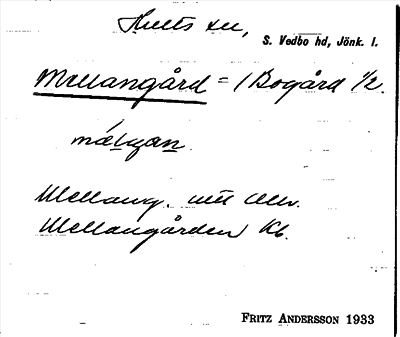 Hults sn,
S. Vedbo hd, Jönk. l.
Mellangård = 1 Bogård 1/2.
mǽlgan
Mellang.
Mellangården Kb.
FRITZ ANDERSSON 1933